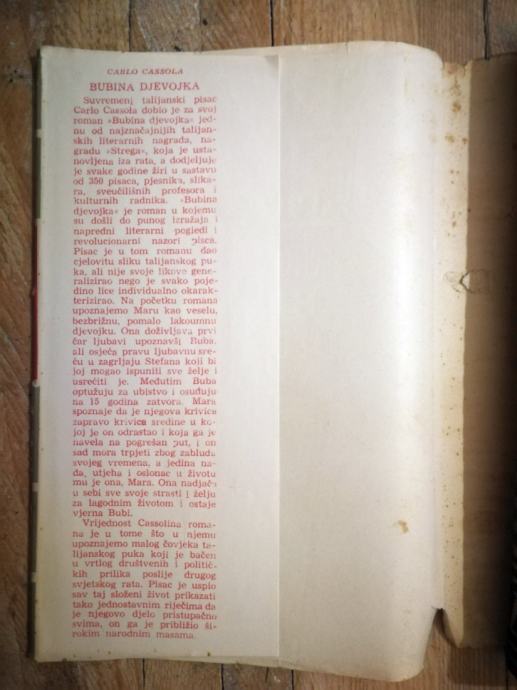 CARLO CASSOLA
BUBINA DJEVOJKA
Suvremeni talijanski pisac
Carlo Cassola dobio je za svoj
roman »Bubina djevojka« jed-
nu od najznačajnijih talijan-
skih literarnih nagrada, na-
gradu »Strega«, koja je usta-
novljena iza rata, a dodjeljuje
je svake godine žiri u sastavu
od 350 pisaca, pjesnika, slika-
ra, sveučilišnih profesora i
kulturnih radnika. »Bubina
djevojka« je roman u kojemu
su došli do punog izražaja i
napredni literarni pogledi i
revolucionarni nazori pisca.
Pisac je u tom romanu dao
cjelovitu sliku talijanskog pu-
ka, ali nije svoje likove gene-
ralizirao nego je svako poje-
dino lice individualno okarak-
terizirao. Na početku romana
upoznajemo Maru kao veselu,
bezbrižnu, pomalo lakoumnu
djevojku. Ona doživljava prvi
čar ljubavi upoznavši Buba,
ali osjeća pravu ljubavnu sre-
ću u zagrljaju Stefana koji bi
joj mogao ispuniti sve želje i
usrećiti je. Međutim Buba
optužuju za ubistvo i osuđuju
na 15 godina zatvora. Mara
spoznaje da je njegova krivica
zapravo krivica sredine u ko-
joj je on odrastao i koja ga je
navela na pogrešan put, i on
sad mora trpjeti zbog zabluda
svojeg vremena, a jedina na-
da, utjeha i oslonac u životu
mu je ona, Mara. Ona nadjača
u sebi sve svoje strasti i želju
za lagodnim životom i ostaje
vjerna Bubi.
Vrijednost Cassolina roma-
na je u tome što u njemu
upoznajemo malog čovjeka ta-
lijanskog puka koji je bačen
u vrtlog društvenih i politič-
kih prilika poslije drugog
svjetskog rata. Pisac je uspio
sav taj složeni život prikazati
tako jednostavnim riječima da
je njegovo djelo pristupačno
svima, on ga je približio ši-
rokim narodnim masama.